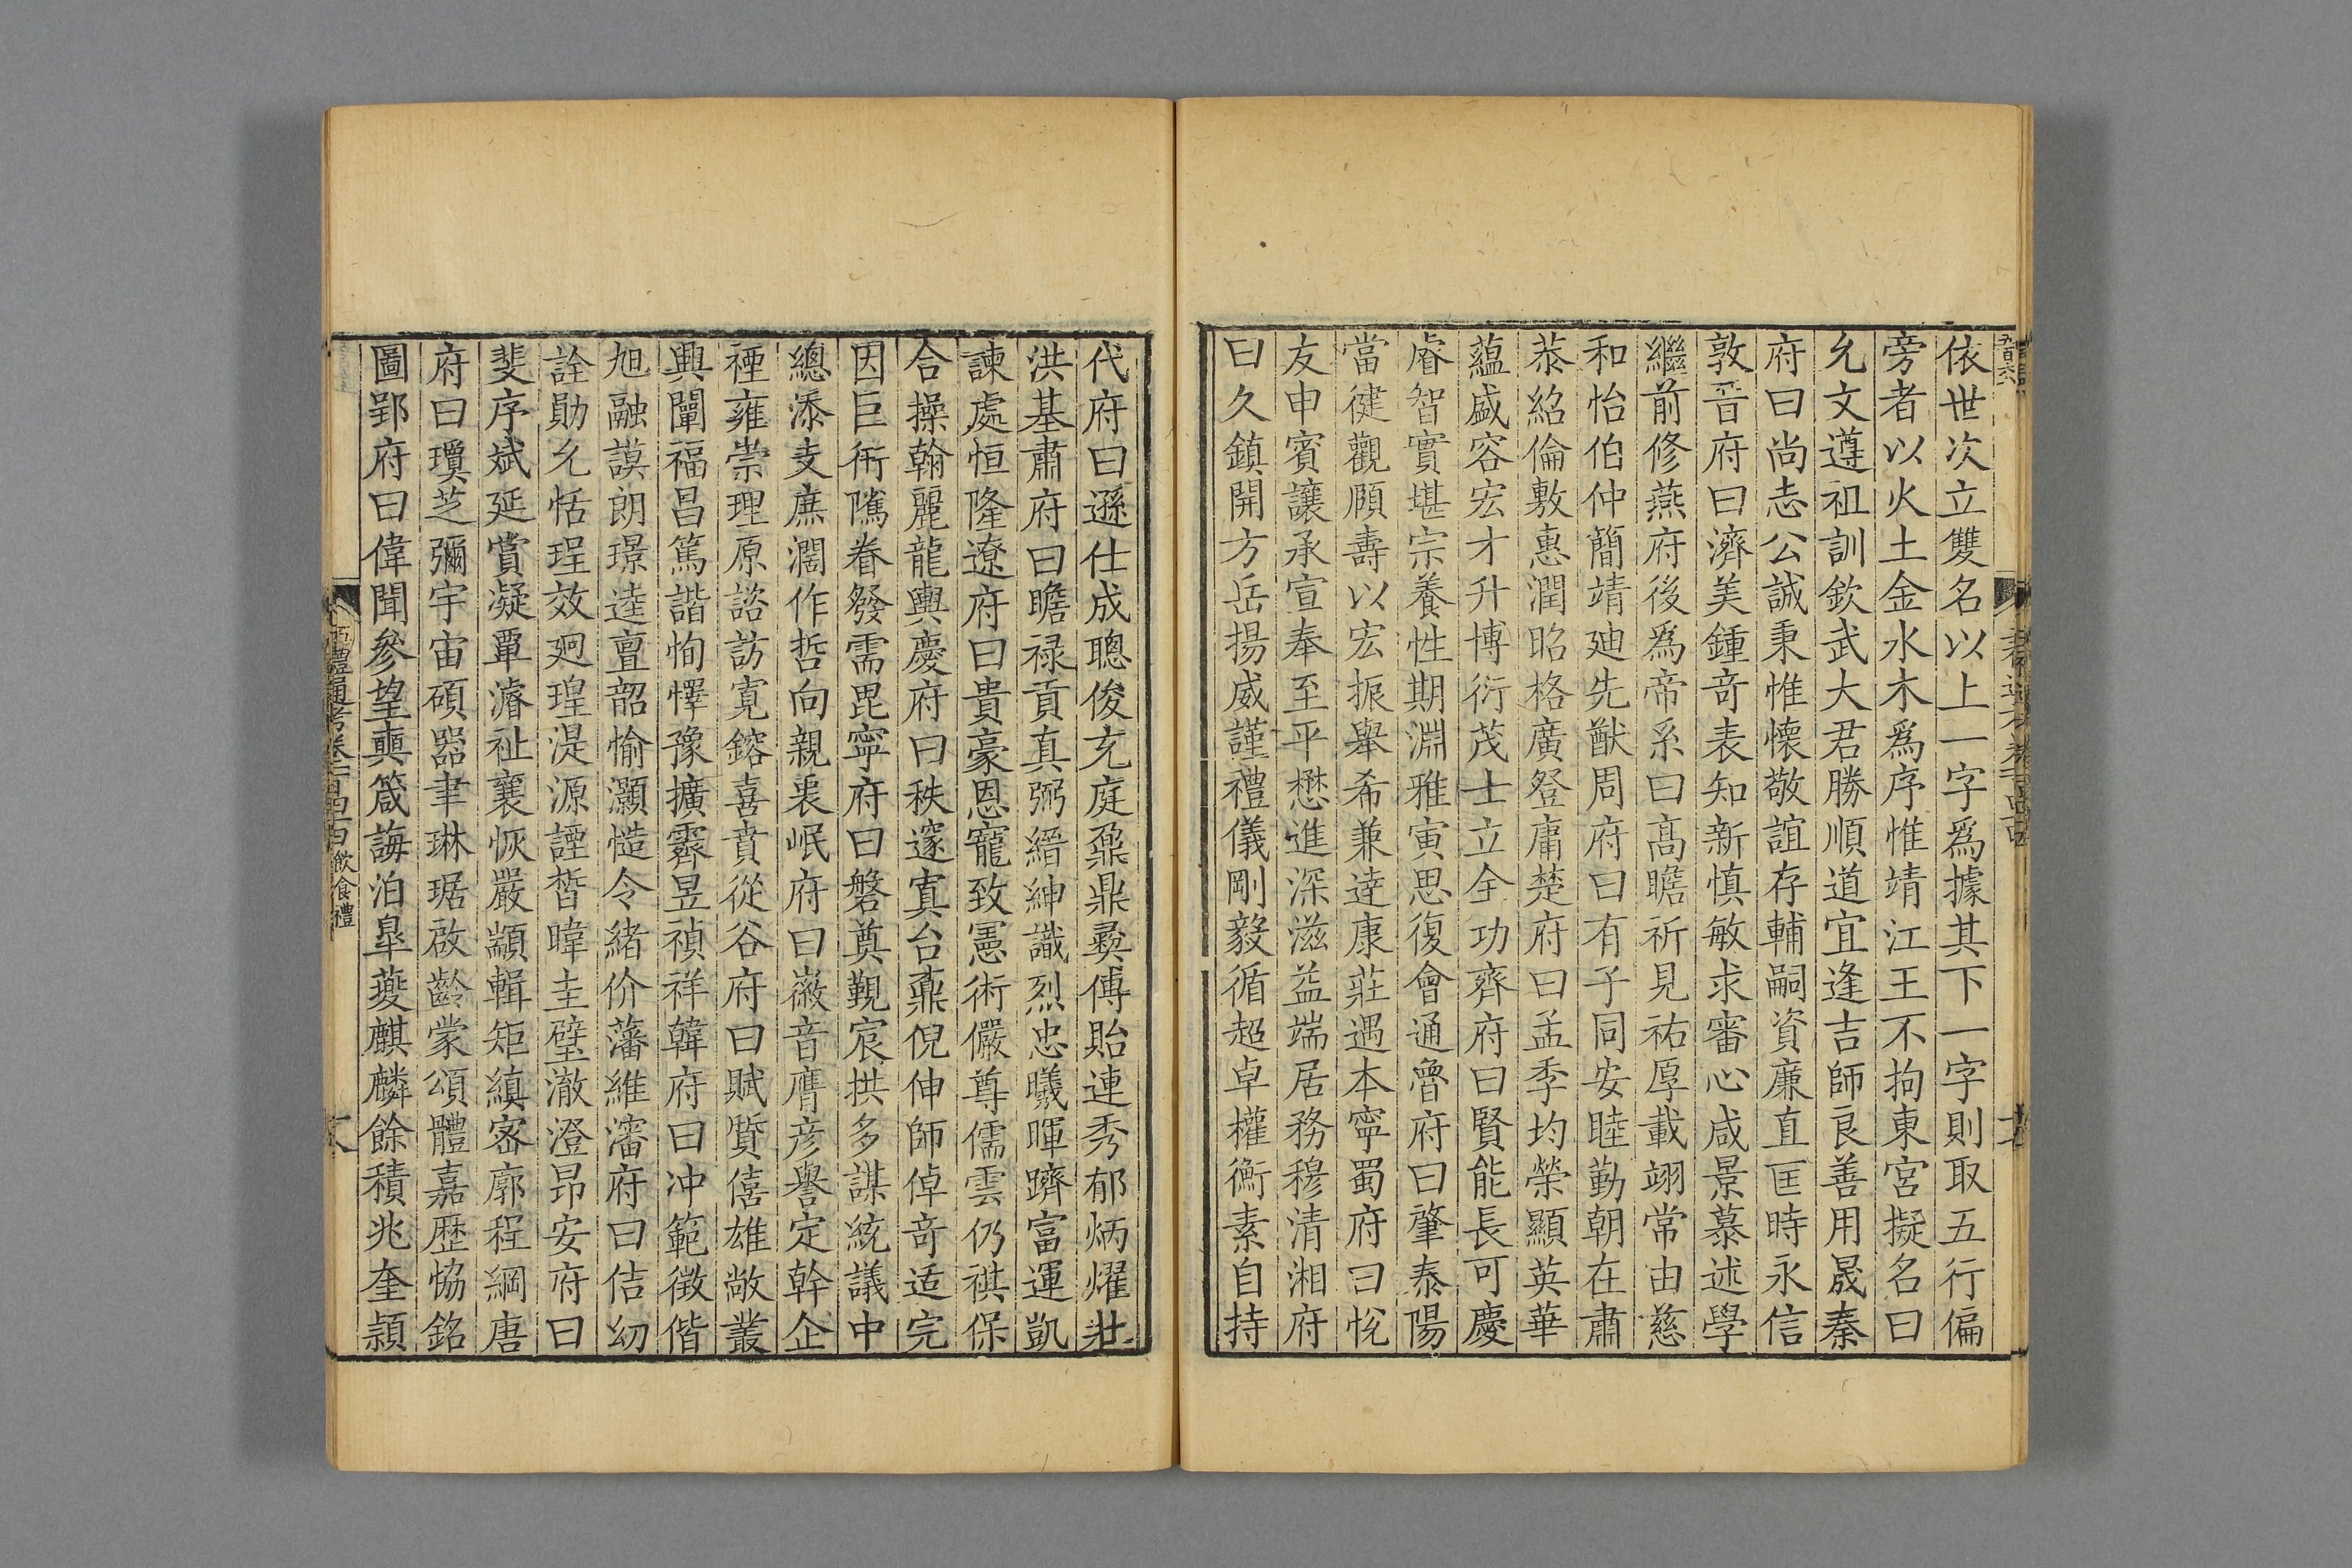 依世次立雙名以上一字爲據其下一字則取五行偏
旁者以火土金水木爲序惟靖江王不拘東宮擬名曰
允文遵祖訓欽武大君勝順道宜逢吉師良善用晟秦
府曰尚志公誠秉惟懷敬誼存輔嗣資廉直匡時永信
敦晉府曰濟美鍾奇表知新慎敏求審心咸景慕述學
繼前修燕府後爲帝系曰高瞻祈見祐厚載翊常由慈
和怡伯仲簡靖廸先猷周府曰有子同安睦勤朝在肅
恭紹倫敷惠潤昭格廣登庸楚府曰孟季均榮顯英華
蘊盛容宏才升博衍茂士立全功齊府曰賢能長可慶
睿智實堪宗養性期淵雅寅思復會通魯府曰肇泰陽
當健觀頤壽以宏振舉希兼達康莊遇本寧蜀府曰悅
友申賓讓承宣奉至平懋進深滋益端居務穆清湘府
曰久鎮開方岳揚威謹禮儀剛毅循超卓權衡素自持
代府曰遜仕成聰俊充庭鼐鼎彝傅貽連秀郁炳燿壯
洪基肅府曰瞻祿貢真弼縉紳識烈忠曦暉躋富運凱
諫處恒隆遼府曰貴豪恩寵致憲術儼尊儒雲仍祺保
合操翰麗龍輿慶府曰秩邃寘台鼒倪伸師倬奇适完
因巨衎隲眷發需毘寧府曰磐奠覲宸拱多謀統議中
總添支庶濶作哲向親衷岷府曰徽音膺彦譽定幹企
禋雍崇理原諮訪寬鎔喜賁從谷府曰賦質僖雄敞叢
興闡福昌篤諧恂懌豫擴霽昱禎祥韓府曰冲範徵偕
旭融謨朗璟逵亶韶愉灝慥令緒价藩維瀋府曰佶幼
詮勛允恬珵效廻瑝湜源諲晳暐圭璧澈澄昂安府曰
斐序斌延賞凝覃濬祉襄恢嚴顓輯矩縝密廓程綱唐
府曰瓊芝彌宇宙碩器聿琳琚啟齡蒙頌體嘉歷恊銘
圖郢府曰偉聞參望奭箴誨泊皐夔麒麟餘積兆奎穎
五禮通考卷一百四十四 飲食禮